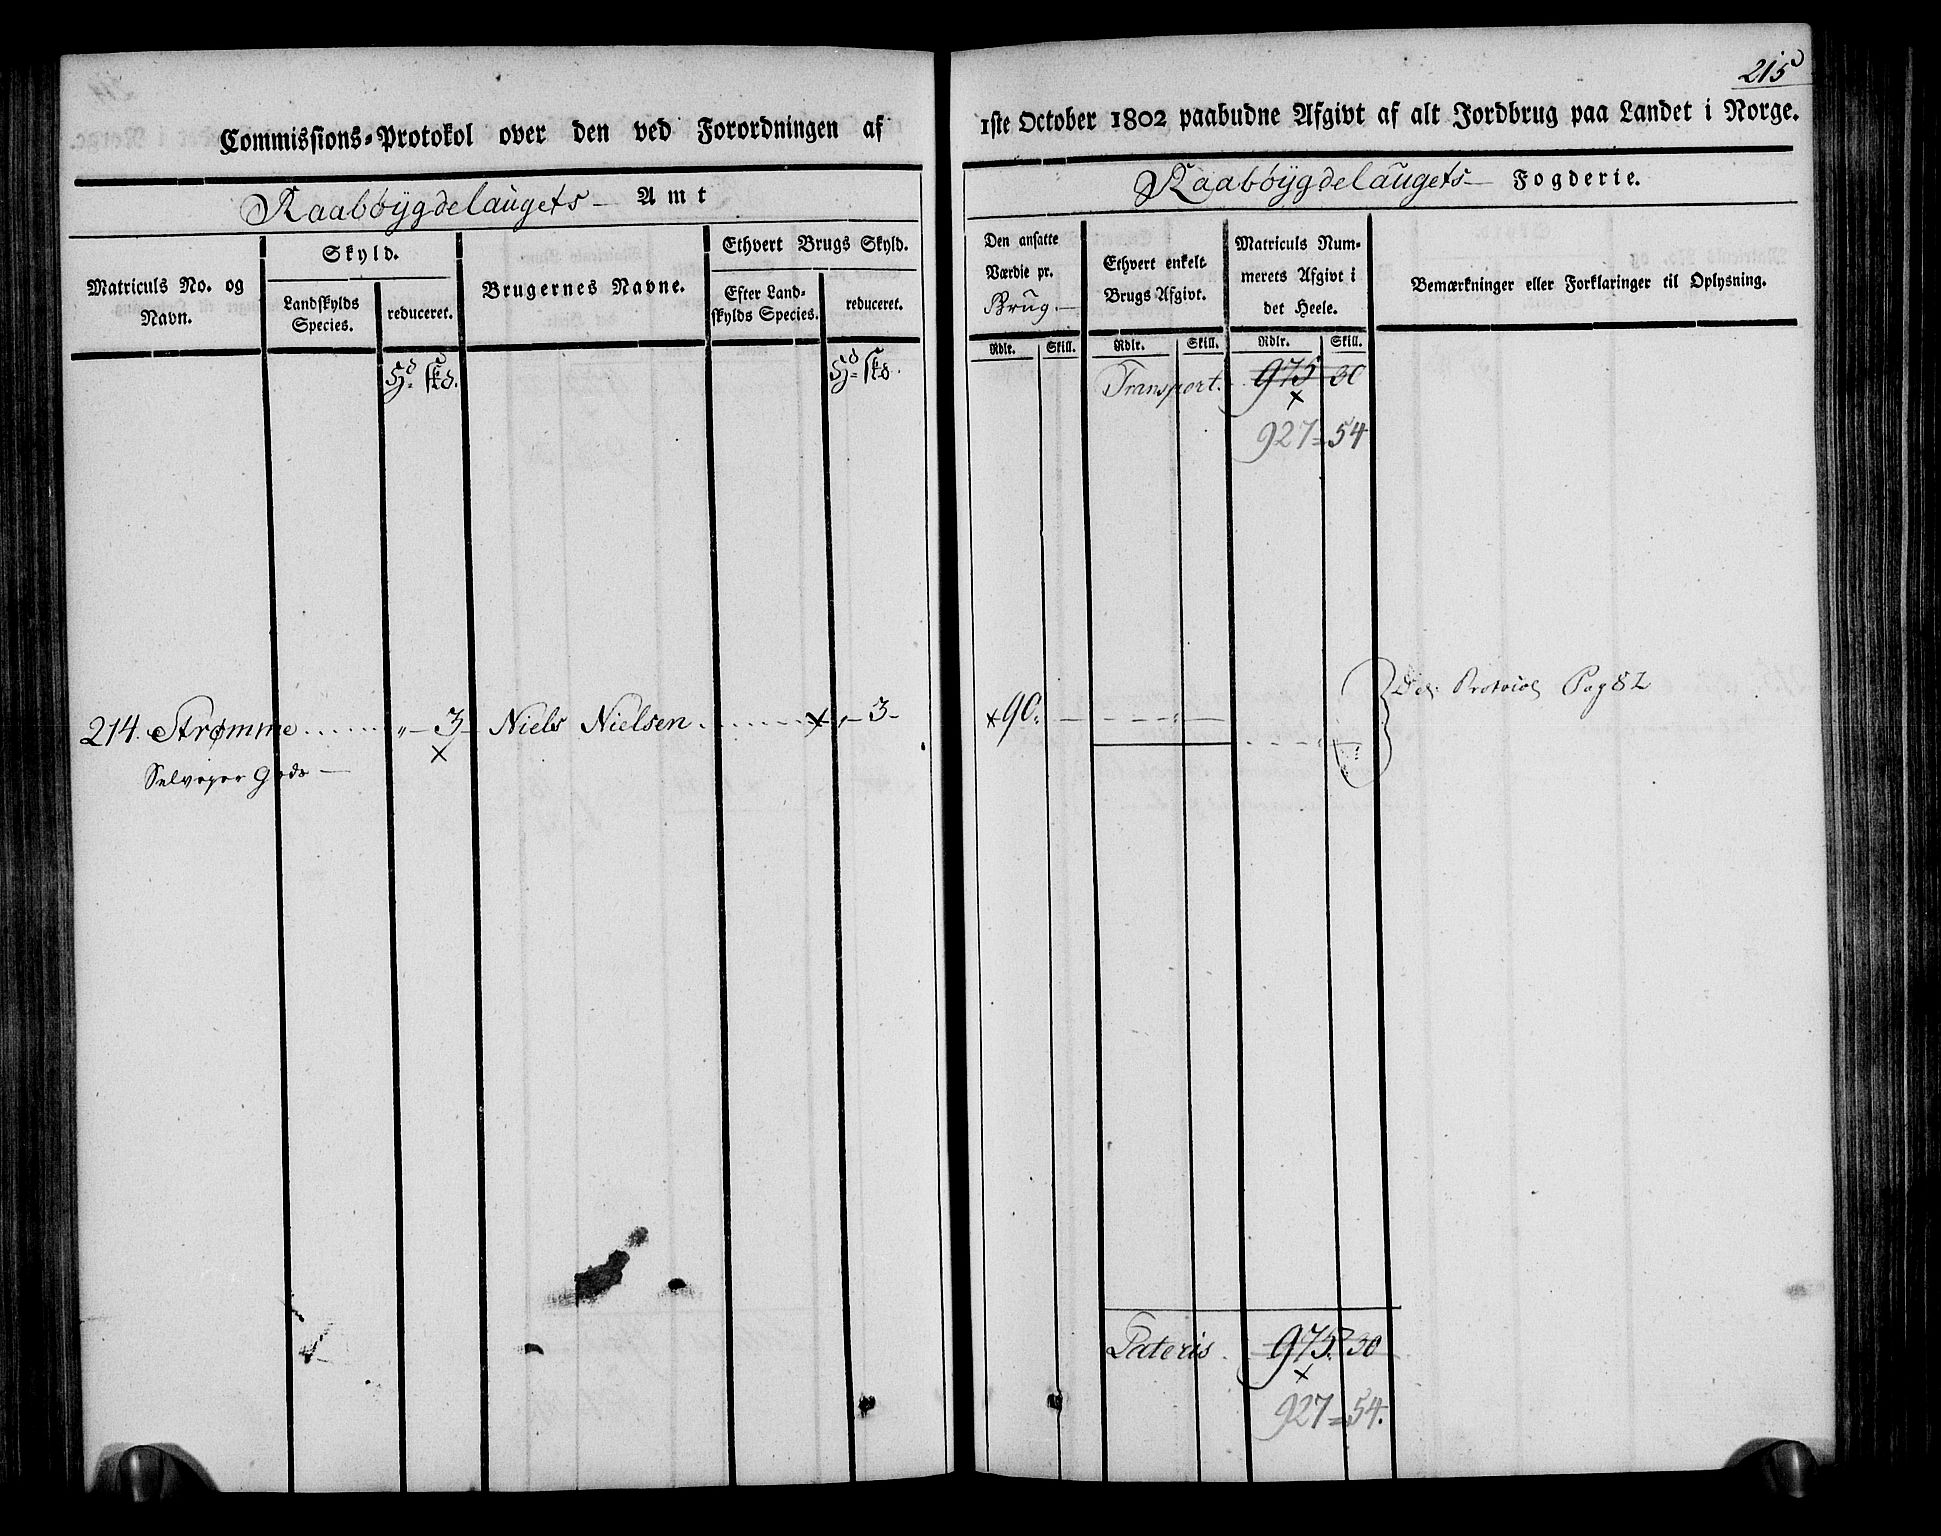 215
Commissions-Protokol over den ved Forordningen af 1ste October 1802 paabudne Afgivt af alt Jordbrug paa Landet i Norge.
Raabøygdelaugets Amt
Raabøygdelaugets Fogderie.
Matriculs No. og Navn.
Skyld.
Landskylds Species.
reduceret.
Brugernes Navne.
Ethvert Brugs Skyld.
Efter Landskylds Species.
reduceret.
Den ansatte Værdie pr. Brug.
Ethvert enkelt Brugs Afgivt.
Matriculs Nummerets Afgivt i det Heele.
Bemærkninger eller Forklaringer til Oplysning.
Rdlr. Skill. Rdlr. Skill. Rdlr. Skill.
Transport. 975 30
927 = 54
214. Strømme „ 3 Niels Nielsen „ 3 90. Protocol Pag 82
Selveyer Gods
Lateris 975. 30
927 = 54.